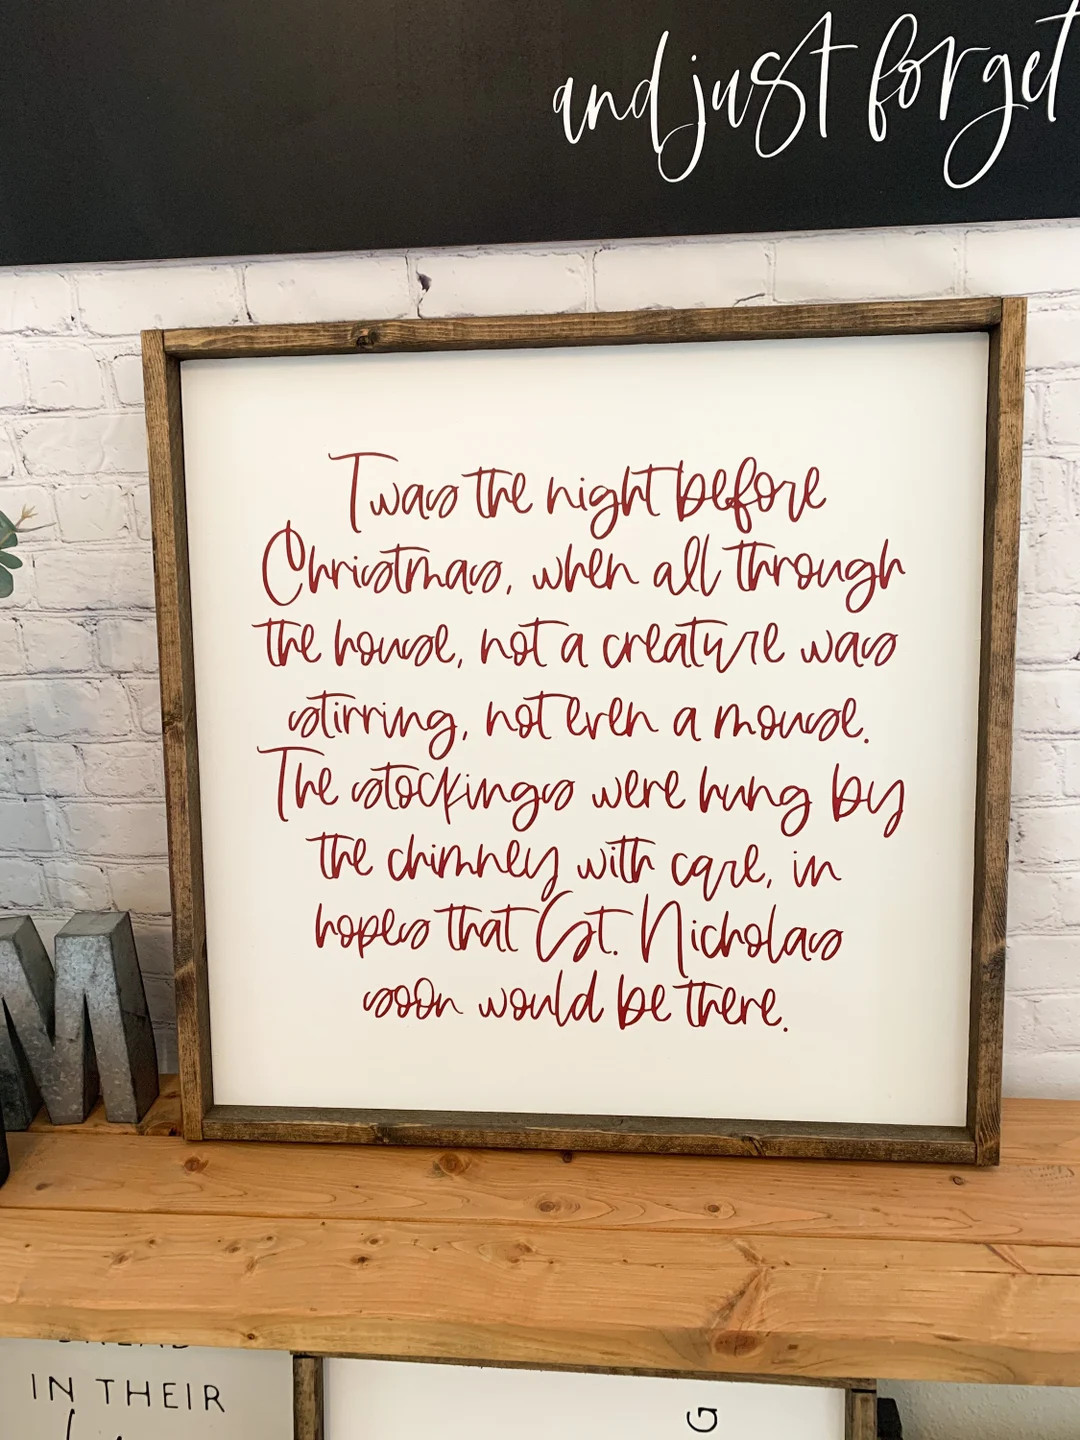 and just forget
Twas the night before
Christmas, when all through
the house, not a creature was
stirring, not even a mouse.
The stockings were hung by
the chimney with care, in
hopes that St. Nicholas
soon would be there.
M
IN THEIR
G